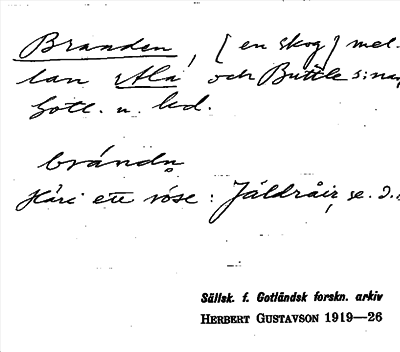 Branden, [en skog] mel-
lan Ala och Buttle s:nar,
Gotl. n. hd.
brándn̥
Häri ett röse: Jäldráir, se. d.o.
Sällsk. f. Gotländsk forskn. arkiv
HERBERT GUSTAVSON 1919—26